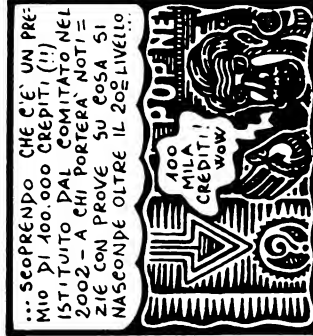 ...SCOPRENDO CHE C'È UN PRE=
MIO DI 100.000 CREDITI (!!)
ISTITUITO DAL COMITATO NEL
2002 - A CHI PORTERÀ NOTI=
ZIE CON PROVE SU COSA SI
NASCONDE OLTRE IL 20º LIVELLO...
POP. NE
100
MILA
CREDITI!
WOW